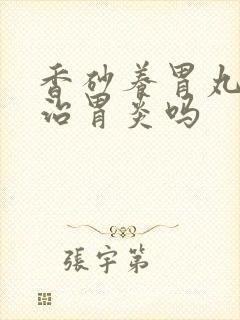 香砂养胃丸
治胃炎吗
張宇第